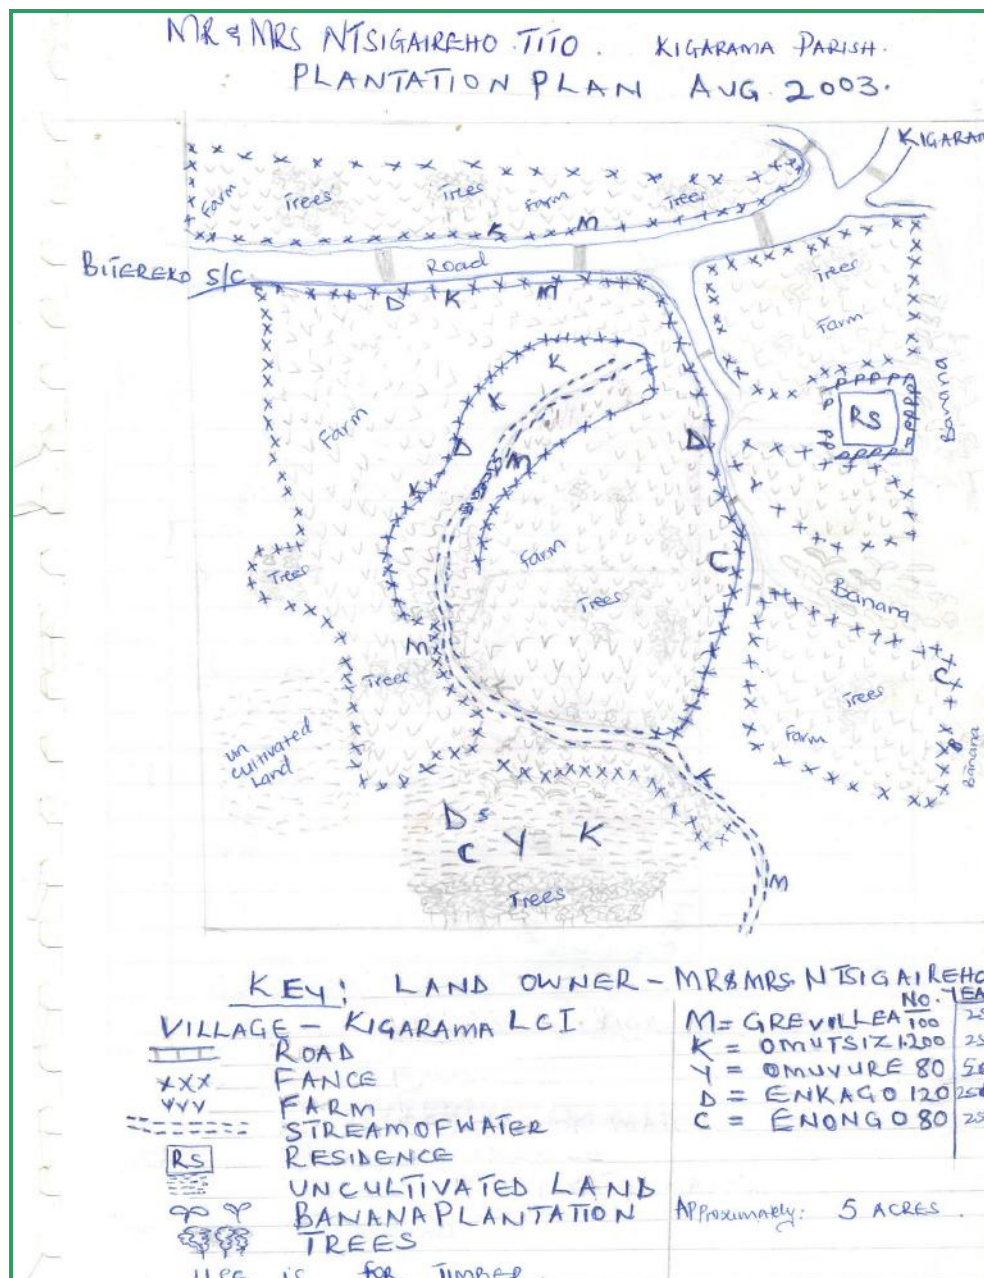 MR & MRS NTSIGAIREHO TITO. KIGARAMA PARISH.
PLANTATION PLAN AUG. 2003.
KIGARAM
Farm Trees Trees Farm Trees
K M
BITEREKO S/C Road
D K M
Trees
Farm
Banana
RS
K
K
Farm
D M D
K
Farm
C
Trees Trees
Banana
M
Trees
C
Trees
Farm
Banana
un cultivated Land
K
D s
C Y K
Trees
M
KEY: LAND OWNER - MR & MRS. NTSIGAIREHO
VILLAGE - KIGARAMA LC I
ROAD
XXX FANCE
VVV FARM
STREAM OF WATER
RS RESIDENCE
UNCULTIVATED LAND
BANANA PLANTATION
TREES
USE IS FOR TIMBER
NO. YEA
M = GREVILLEA 100 25
K = OMUTSIZI 200 25
Y = OMUVURE 80 50
D = ENKAGO 120 25
C = ENONGO 80 25
Approximately: 5 ACRES.